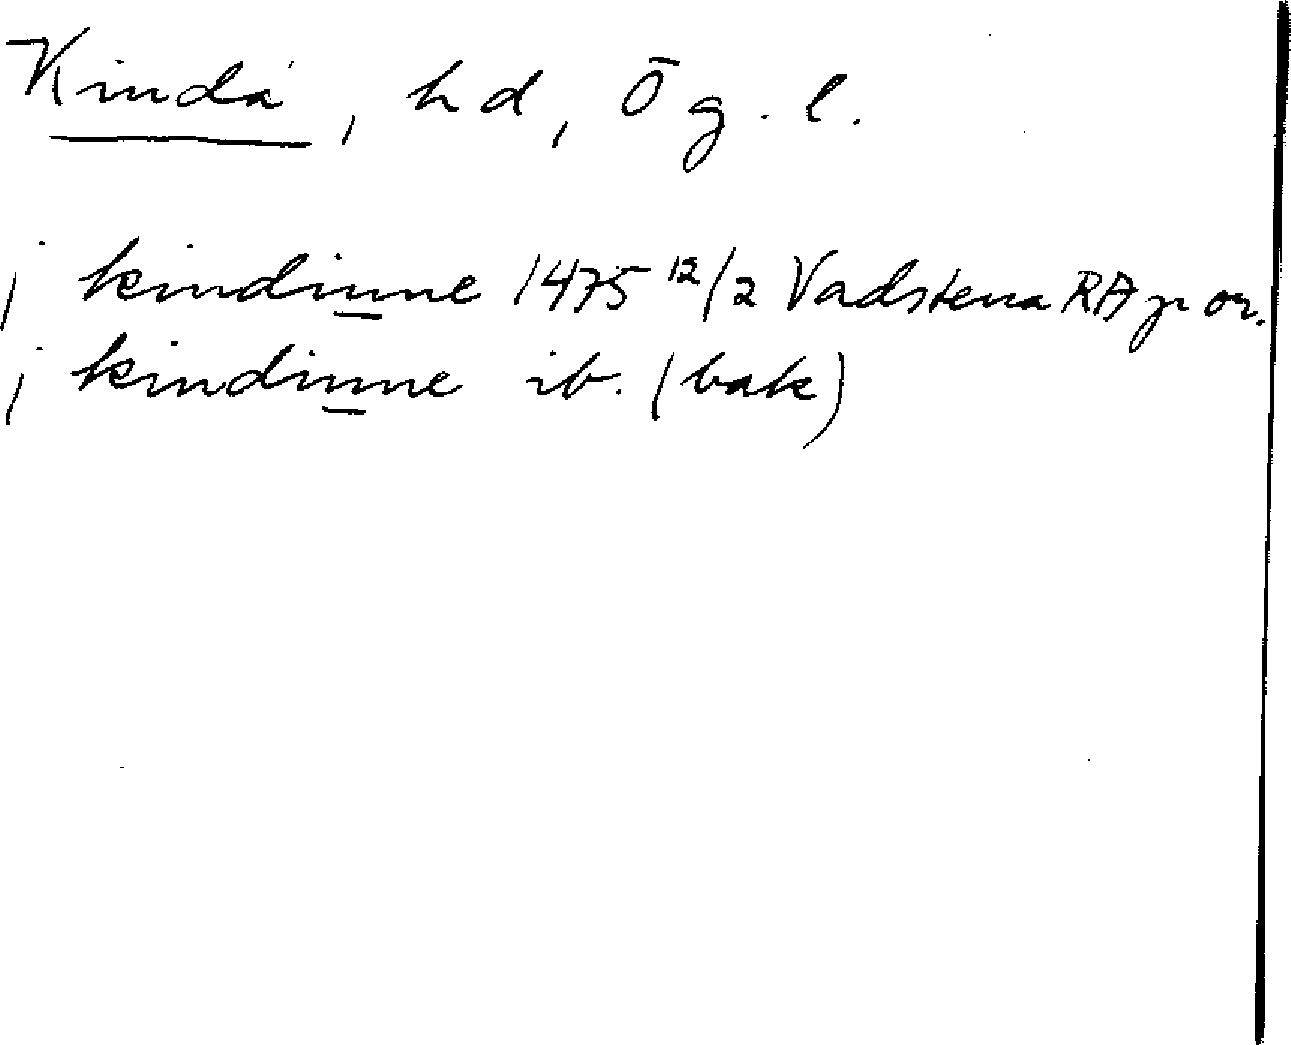 Kinda, hd, Ög. l.
j kindinne 1475 12/2 Vadstena RA p or.
j kindinne ib. (bak)